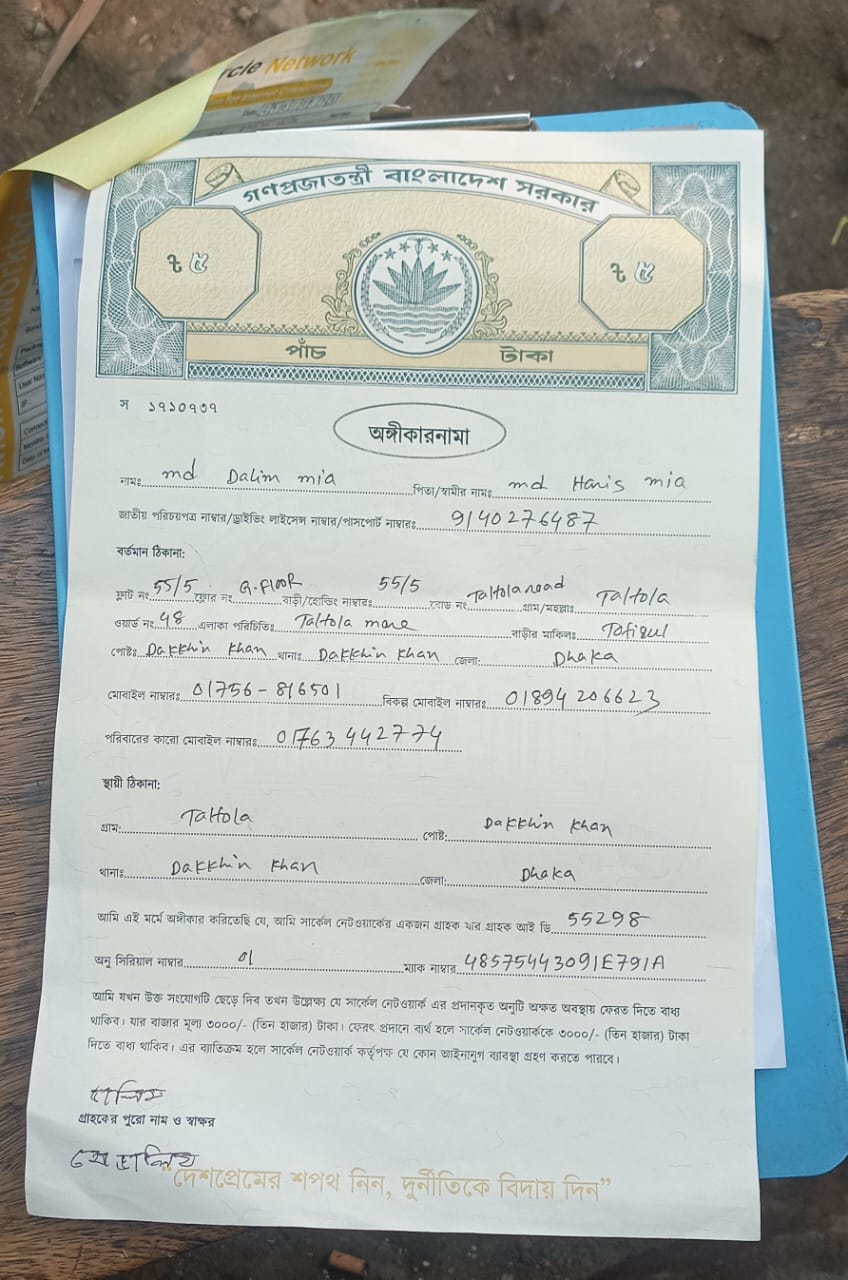 rcle Network
গণপ্রজাতন্ত্রী বাংলাদেশ সরকার
৳ ৫
৳ ৫
পাঁচ টাকা
স ১৭১০৭৩৭
অঙ্গীকারনামা
নামঃ md Dalim mia পিতা/স্বামীর নামঃ md Haris mia
জাতীয় পরিচয়পত্র নাম্বার/ড্রাইভিং লাইসেন্স নাম্বার/পাসপোর্ট নাম্বারঃ 9140276487
বর্তমান ঠিকানা:
ফ্লাট নং 55/5 ফ্লোর নং G.Floor বাড়ী/হোল্ডিং নাম্বারঃ 55/5 রোড নং Taltola road গ্রাম/মহল্লাঃ Taltola
ওয়ার্ড নং 48 এলাকা পরিচিতিঃ Taltola more বাড়ীর মালিকঃ Tofiqul
পোষ্টঃ Dakkhin Khan থানাঃ Dakkhin Khan জেলা: Dhaka
মোবাইল নাম্বারঃ 01756-816501 বিকল্প মোবাইল নাম্বারঃ 01894 206623
পরিবারের কারো মোবাইল নাম্বারঃ 01763 442774
স্থায়ী ঠিকানা:
গ্রাম: Taltola পোষ্ট: Dakkhin Khan
থানাঃ Dakkhin Khan জেলা: Dhaka
আমি এই মর্মে অঙ্গীকার করিতেছি যে, আমি সার্কেল নেটওয়ার্কের একজন গ্রাহক যার গ্রাহক আই ডি 55298
অনু সিরিয়াল নাম্বার 01 ম্যাক নাম্বার 48575443091E791A
আমি যখন উক্ত সংযোগটি ছেড়ে দিব তখন উল্লেক্ষ্য যে সার্কেল নেটওয়ার্ক এর প্রদানকৃত অনুটি অক্ষত অবস্থায় ফেরত দিতে বাধ্য
থাকিব। যার বাজার মূল্য ৩০০০/- (তিন হাজার) টাকা। ফেরৎ প্রদানে ব্যর্থ হলে সার্কেল নেটওয়ার্ককে ৩০০০/- (তিন হাজার) টাকা
দিতে বাধ্য থাকিব। এর ব্যতিক্রম হলে সার্কেল নেটওয়ার্ক কর্তৃপক্ষ যে কোন আইনানুগ ব্যবস্থা গ্রহণ করতে পারবে।
ডালিম
গ্রাহকের পুরো নাম ও স্বাক্ষর
মোঃ ডালিম
"দেশপ্রেমের শপথ নিন, দুর্নীতিকে বিদায় দিন"